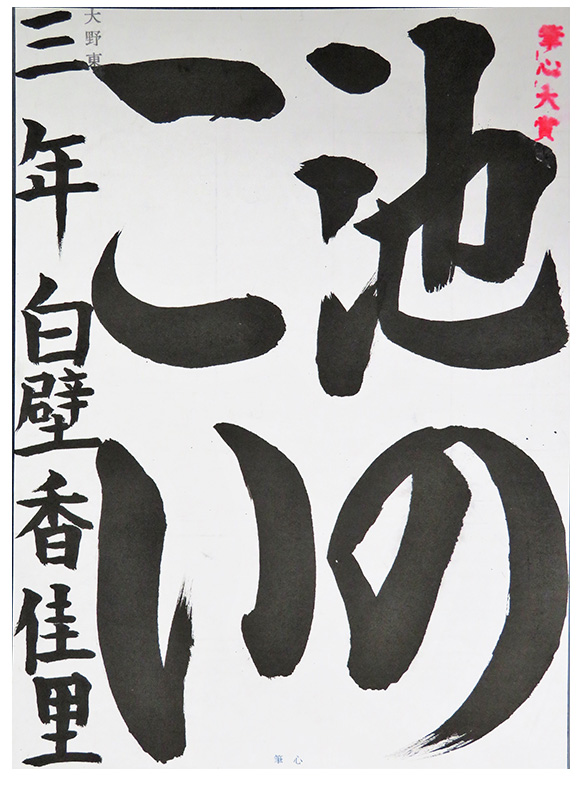 筆心大賞
池の
こい
大野東
三年 白壁香佳里
筆心